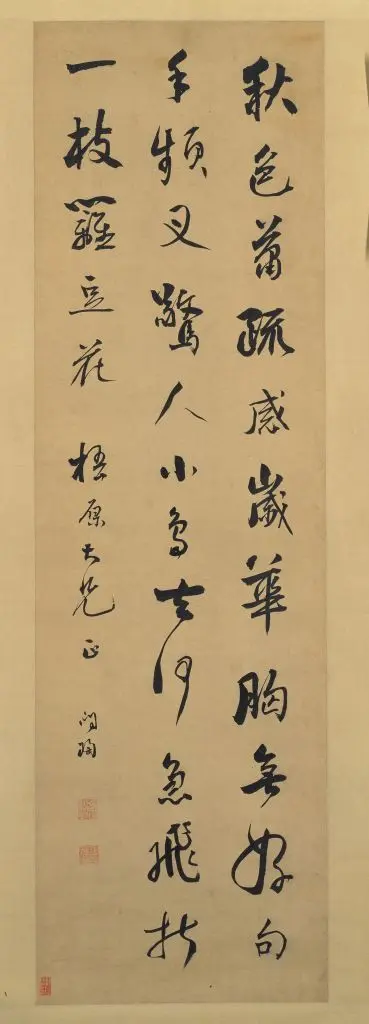 秋色蕭疏感歲華胸無好句
手頻叉驚人小鳥去何急飛折
一枝籬豆花 梧原大兄正